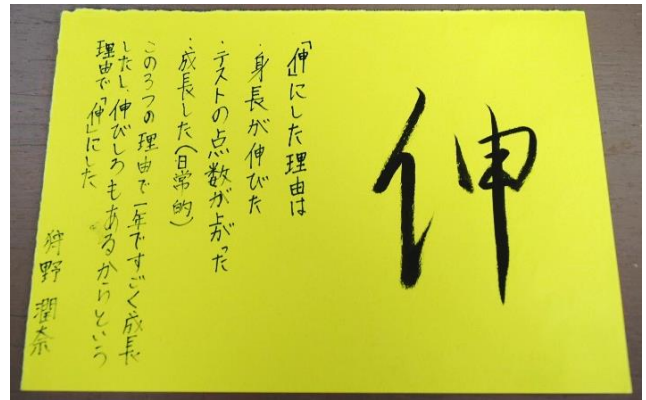 伸
「伸」にした理由は
・身長が伸びた
・テストの点数が上がった
・成長した(日常的)
この3つの理由で一年ですごく成長
したし、伸びしろもあるからという
理由で「伸」にした
狩野潤奈